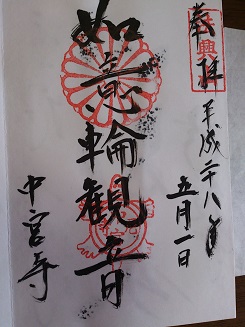 奉拝
平成二十八年
五月一日
如意輪観音
中宮寺